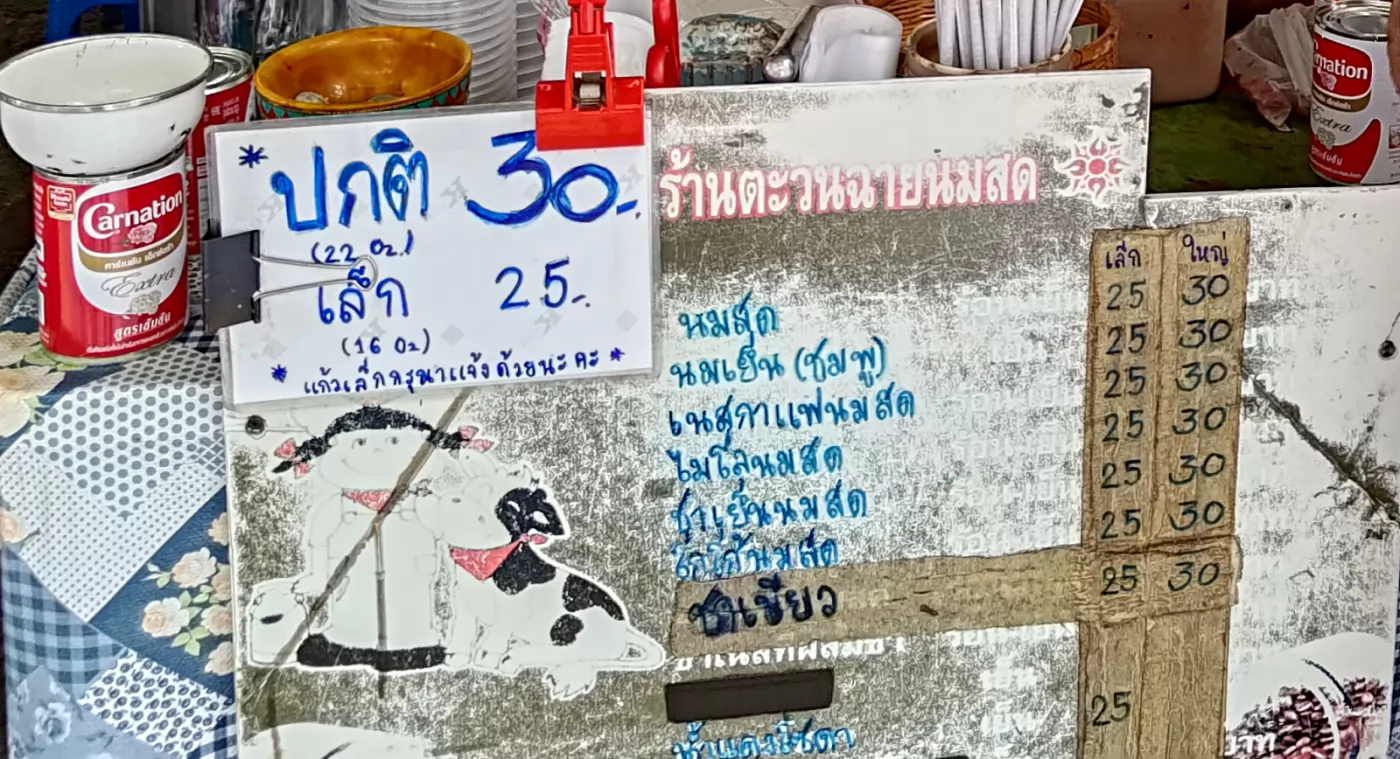 Carnation
คาร์เนชัน เอ็กซ์ตร้า
Extra
สูตรเข้มข้น
* ปกติ 30.-
(22 Oz.)
เล็ก 25.-
(16 Oz)
* แก้วเล็กกรุณาแจ้งด้วยนะคะ *
ร้านตะวันฉายนมสด
เล็ก ใหญ่
นมสด 25 30
นมเย็น (ชมพู) 25 30
เนสกาแฟนมสด 25 30
ไมโลนมสด 25 30
ชาเย็นนมสด 25 30
โกโก้นมสด 25 30
ชาเขียว 25 30
25
น้ำแดงโซดา
nation
Extra
สูตรเข้มข้น